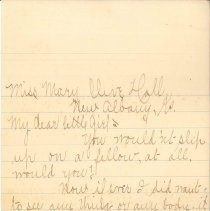 Miss Mary Olive Hall,
New Albany, Ms.
My dear little Girl:
You would'nt slip
up on a fellow, at all,
would you?
Now if ever I did want
to see any thing or any body, it